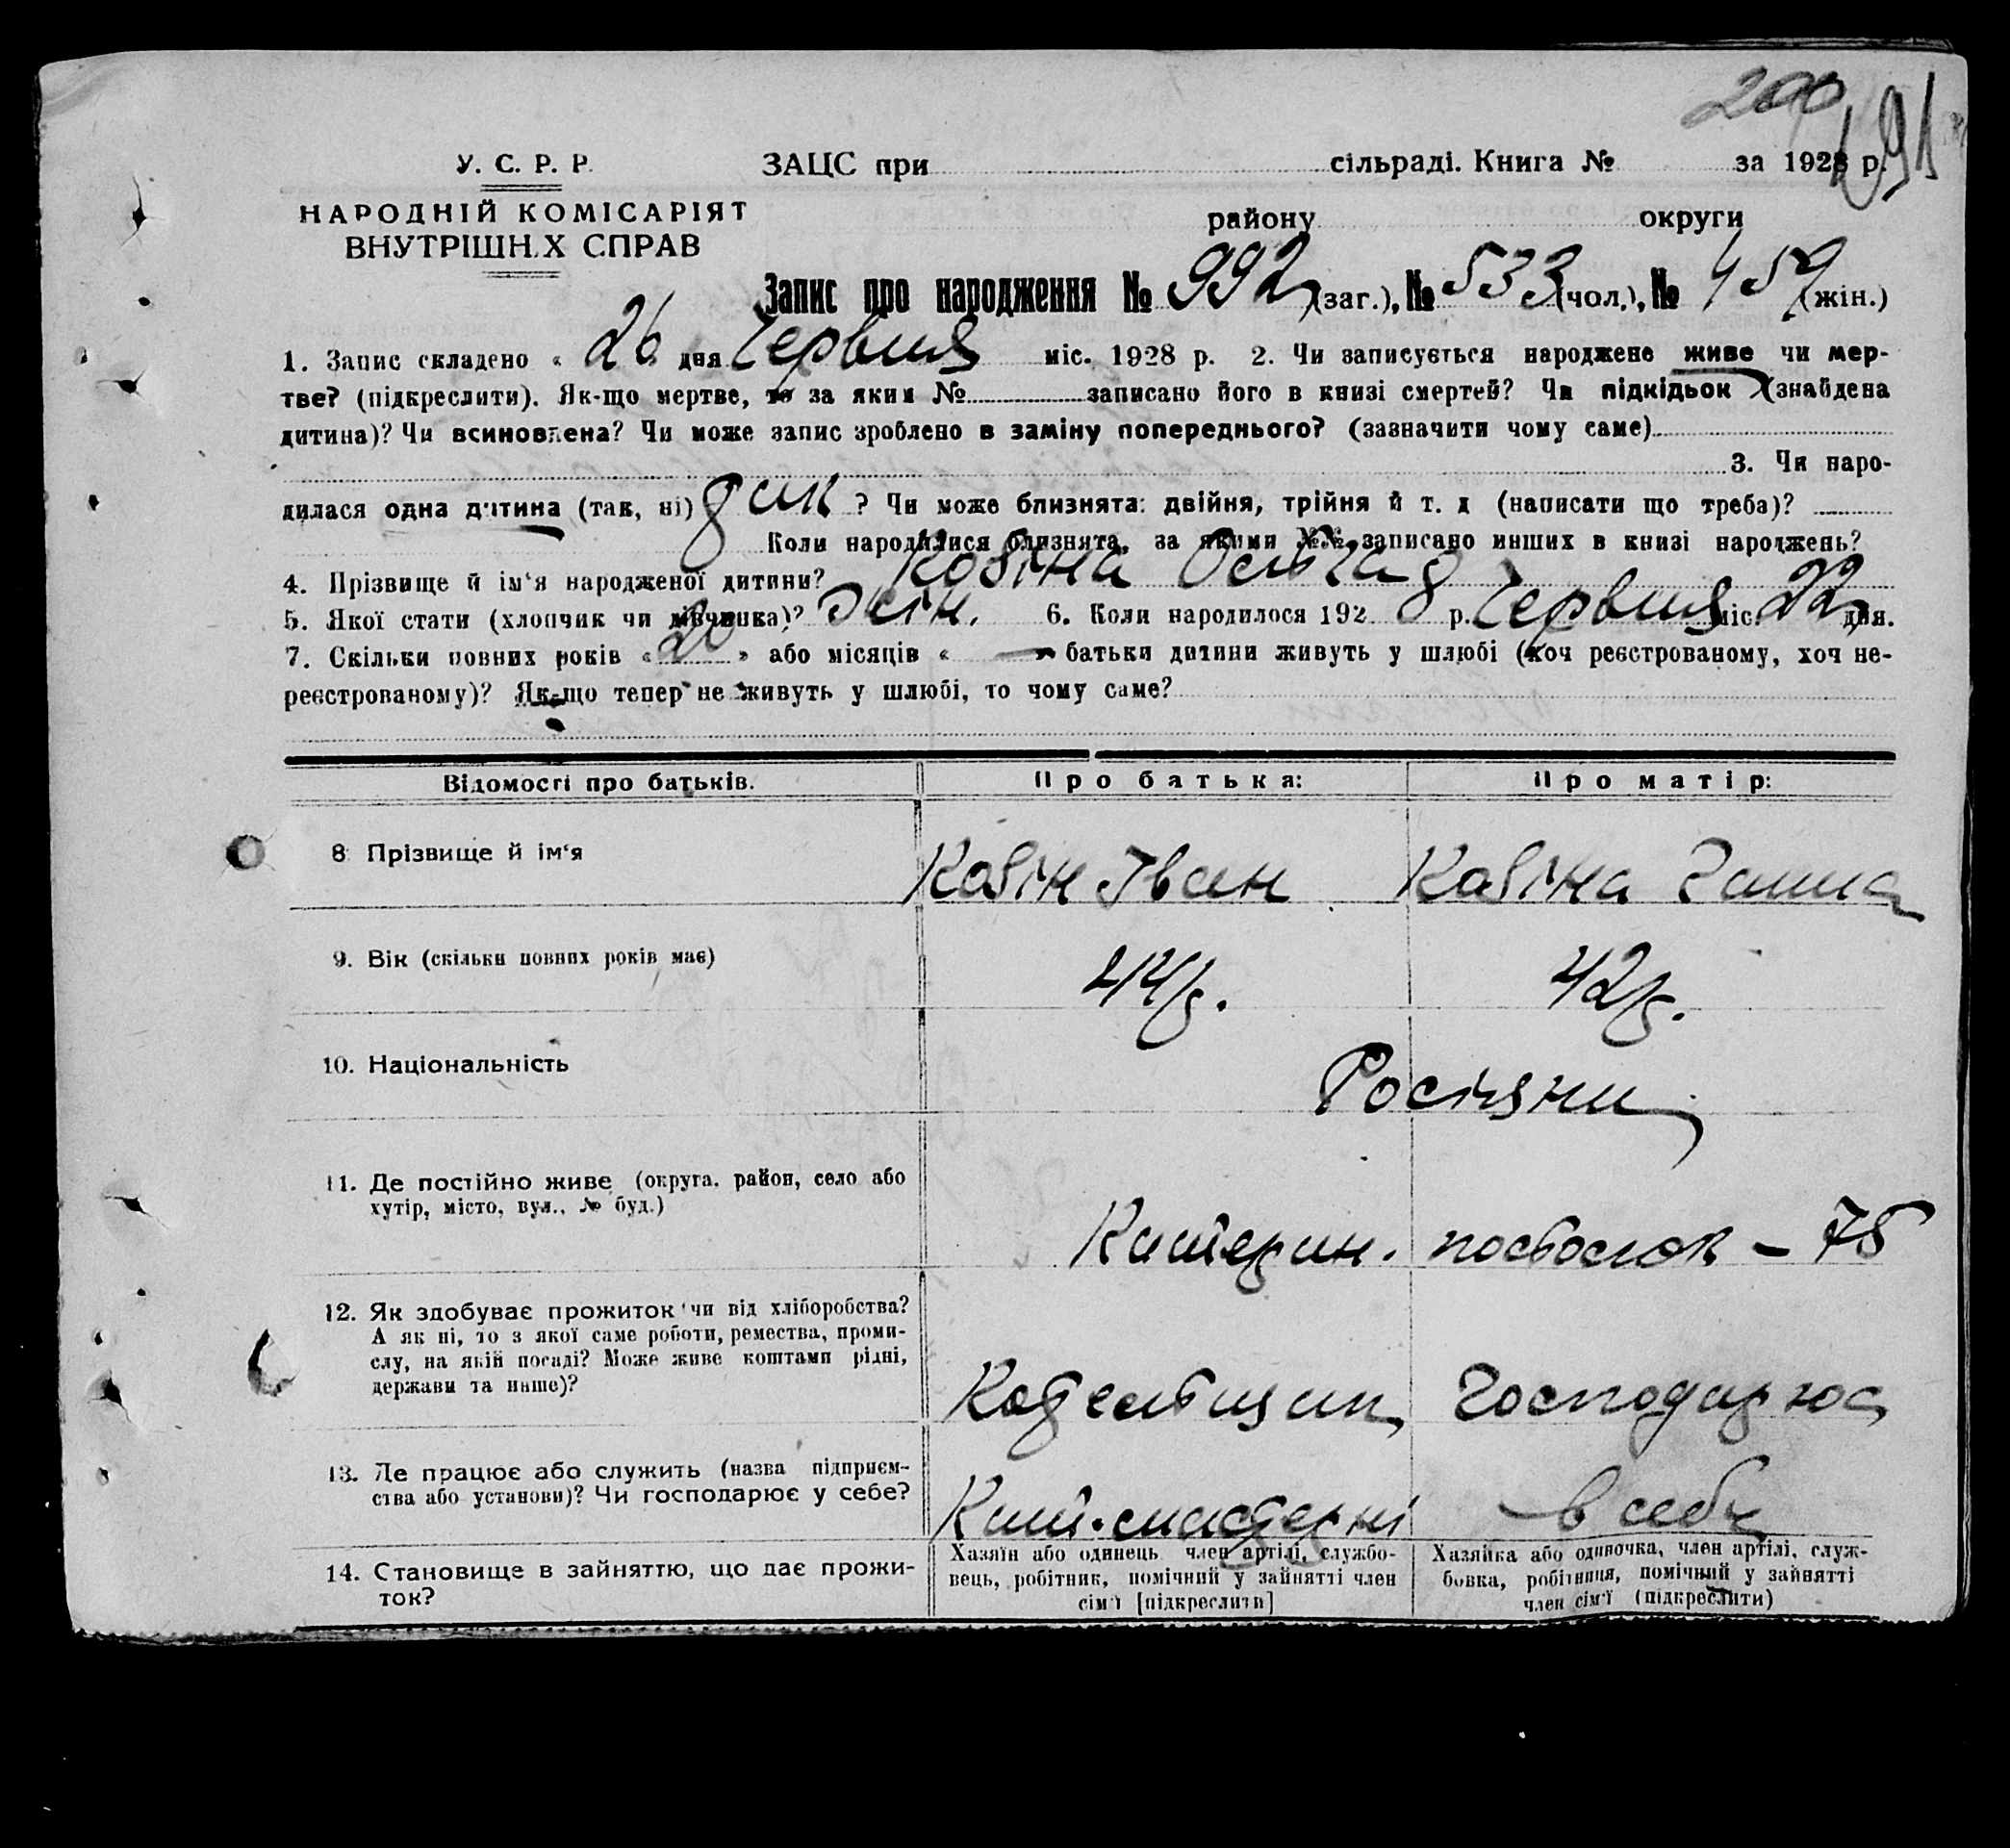 200
191
У. С. Р. Р.
ЗАЦС при сільраді. Книга № за 1928 р.
НАРОДНІЙ КОМІСАРІЯТ
ВНУТРІШН.Х СПРАВ
району округи
Запис про народження № 992 (заг.), № 533 (чол.), № 459 (жін.)
1. Запис складено « 26 дня Червня міс. 1928 р. 2. Чи записується народжене живе чи мер-
тве? (підкреслити). Як-що мертве, то за яким № записано його в книзі смертей? Чи підкідьок (знайдена
дитина)? Чи всиновлена? Чи може запис зроблено в заміну попереднього? (зазначити чому саме)
3. Чи наро-
дилася одна дитина (так, ні) ? Чи може близнята: двійня, трійня й т. д (написати що треба)?
Коли народилися близнята, за якими №№ записано инших в книзі народжень?
4. Прізвище й ім'я народженої дитини? Кобіна
5. Якої стати (хлопчик чи дівчинка)? жін. 6. Коли народилось 1928 р. Червня міс. 22 дня.
7. Скільки повних років « 20 » або місяців « — » батьки дитини живуть у шлюбі (хоч реєстрованому, хоч не-
реєстрованому)? Як-що тепер не живуть у шлюбі, то чому саме?
Відомості про батьків. Про батька: Про матір:
8 Прізвище й ім'я Кобін Іван Кобіна Ганна
9. Вік (скільки повних років має) 44 р. 42 р.
10. Національність Росіяни
11. Де постійно живе (округа, район, село або
хутір, місто, вул., № буд.) Катерин. – 75
12. Як здобуває прожиток чи від хліборобства?
А як ні, то з якої саме роботи, ремества, проми-
слу, на якій посаді? Може живе коштами рідні,
держави та инше)? Господарює
13. Де працює або служить (назва підприєм-
ства або установи)? Чи господарює у себе? в себе
14. Становище в зайняттю, що дає прожи-
ток?
Хазяїн або одинець, член артілі, службо-
вець, робітник, помічний у зайнятті член
сім'ї [підкреслити]
Хазяйка або одиночка, член артілі, служ-
бовка, робітниця, помічний у зайнятті
член сім'ї (підкреслити)